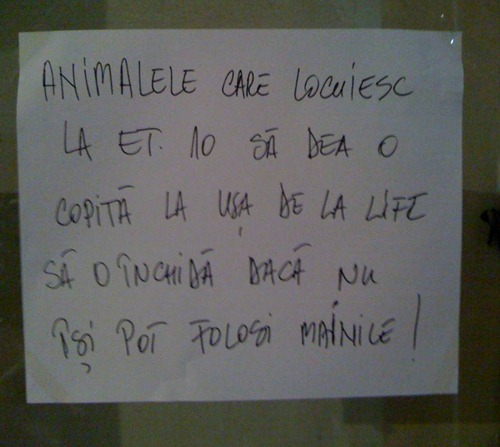 ANIMALELE CARE LOCUIESC
LA ET. 10 SĂ DEA O
COPITĂ LA UȘA DE LA LIFT
SĂ O ÎNCHIDĂ DACĂ NU
ÎȘI POT FOLOSI MAINILE!